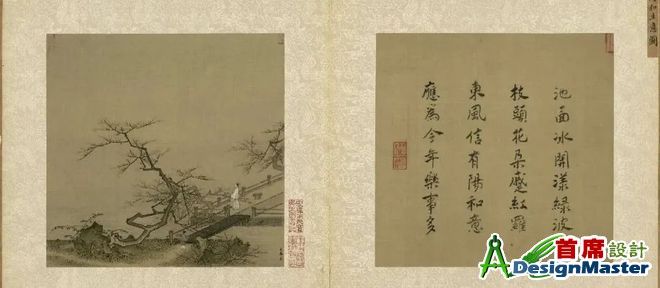 池面冰開漾綠波
枝頭花朶蹙紅羅
東風信有陽和意
應為今年樂事多
首席設計
DesignMaster